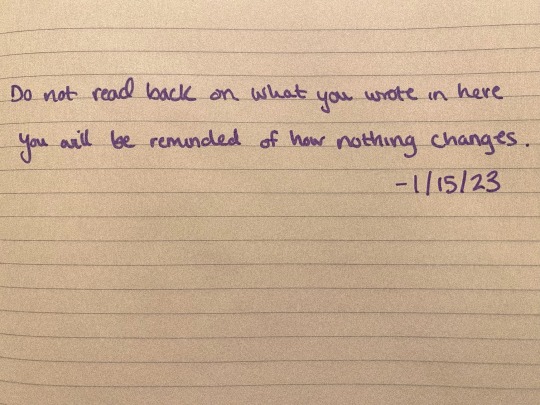 Do not read back on what you wrote in here
you will be reminded of how nothing changes.
-1/15/23